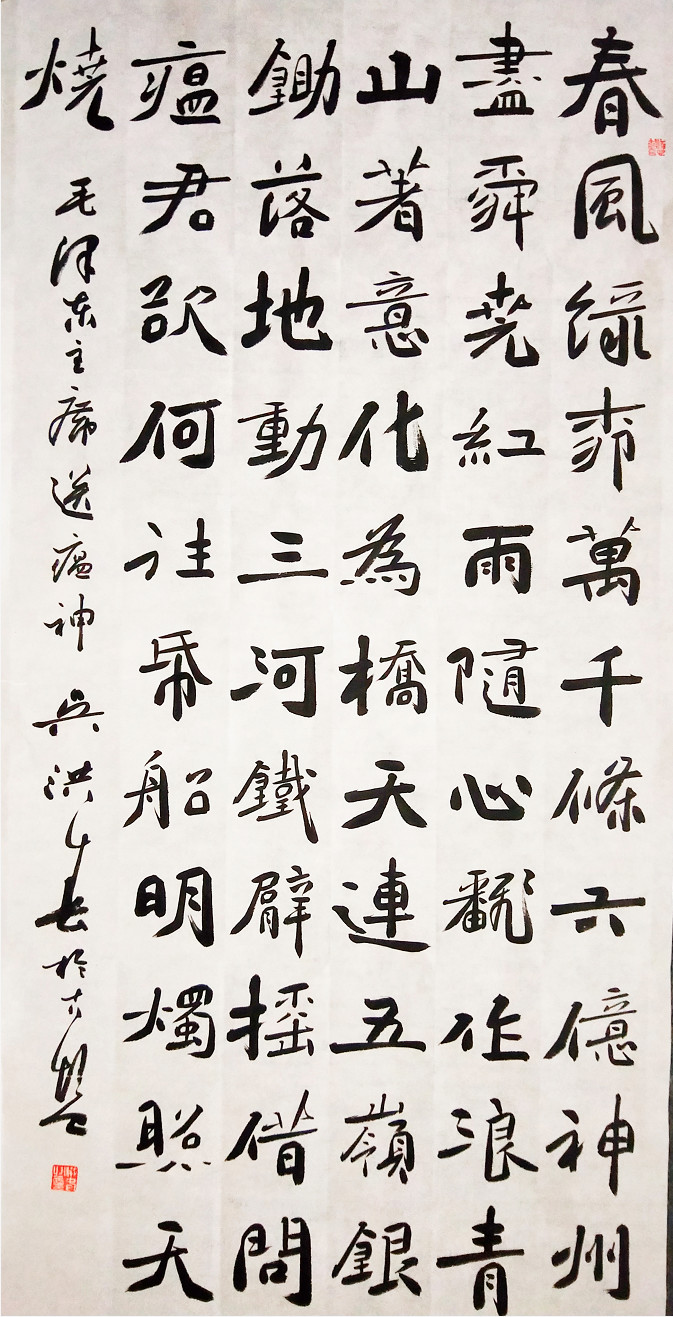 春風綠桺萬千條六億神州
盡舜堯紅雨隨心飜作浪青
山著意化為橋天連五嶺銀
鋤落地動三河鐵臂搖借問
瘟君欲何往帋船明燭照天
燒
毛泽东主席送瘟神 吳洪